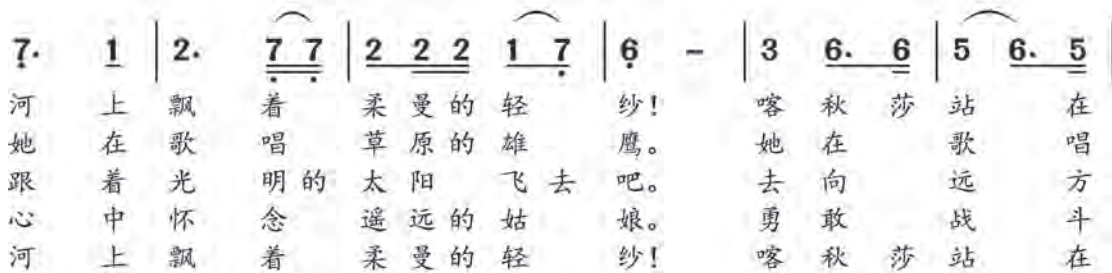 7. 1 | 2. 7 7 | 2 2 2 1 7 | 6 - | 3 6. 6 | 5 6. 5 |
河 上 飘 着 柔 曼 的 轻 纱！ 喀 秋 莎 站 在
她 在 歌 唱 草 原 的 雄 鹰。 她 在 歌 唱
跟 着 光 明 的 太 阳 飞 去 吧。 去 向 远 方
心 中 怀 念 遥 远 的 姑 娘。 勇 敢 战 斗
河 上 飘 着 柔 曼 的 轻 纱！ 喀 秋 莎 站 在